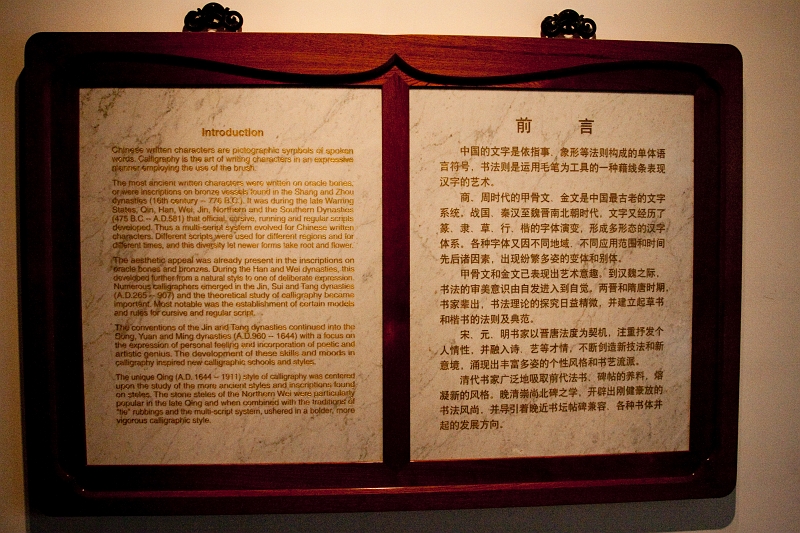 Introduction
Chinese written characters are pictographic symbols of spoken
words. Calligraphy is the art of writing characters in an expressive
manner employing the use of the brush.
The most ancient written characters were written on oracle bones,
or were inscriptions on bronze vessels found in the Shang and Zhou
dynasties (16th century -- 776 B.C.). It was during the late Warring
States, Qin, Han, Wei, Jin, Northern and the Southern Dynasties
(475 B.C. -- A.D.581) that official, cursive, running and regular scripts
developed. Thus a multi-script system evolved for Chinese written
characters. Different scripts were used for different regions and for
different times, and this diversity let newer forms take root and flower.
The aesthetic appeal was already present in the inscriptions on
oracle bones and bronzes. During the Han and Wei dynasties, this
developed further from a natural style to one of deliberate expression.
Numerous calligraphers emerged in the Jin, Sui and Tang dynasties
(A.D.265 -- 907) and the theoretical study of calligraphy became
important. Most notable was the establishment of certain models
and rules for cursive and regular script.
The conventions of the Jin and Tang dynasties continued into the
Song, Yuan and Ming dynasties (A.D.960 -- 1644) with a focus on
the expression of personal feeling and incorporation of poetic and
artistic genius. The development of these skills and moods in
calligraphy inspired new calligraphic schools and styles.
The unique Qing (A.D. 1644 -- 1911) style of calligraphy was centered
upon the study of the more ancient styles and inscriptions found
on steles. The stone steles of the Northern Wei were particularly
popular in the late Qing and when combined with the traditions of
"tie" rubbings and the multi-script system, ushered in a bolder, more
vigorous calligraphic style.
前 言
中国的文字是依指事、象形等法则构成的单体语
言符号，书法则是运用毛笔为工具的一种藉线条表现
汉字的艺术。
商、周时代的甲骨文、金文是中国最古老的文字
系统。战国、秦汉至魏晋南北朝时代，文字又经历了
篆、隶、草、行、楷的字体演变，形成多形态的汉字
体系。各种字体又因不同地域、不同应用范围和时间
先后诸因素，出现纷繁多姿的变体和别体。
甲骨文和金文已表现出艺术意趣，到汉魏之际，
书法的审美意识由自发进入到自觉，两晋和隋唐时期，
书家辈出，书法理论的探究日益精微，并建立起草书
和楷书的法则及典范。
宋、元、明书家以晋唐法度为契机，注重抒发个
人情性，并融入诗、艺等才情，不断创造新技法和新
意境，涌现出丰富多姿的个性风格和书艺流派。
清代书家广泛地吸取前代法书、碑帖的养料，熔
凝新的风格。晚清崇尚北碑之学，开辟出刚健豪放的
书法风尚，并导引着晚近书坛帖碑兼容、各种书体并
起的发展方向。